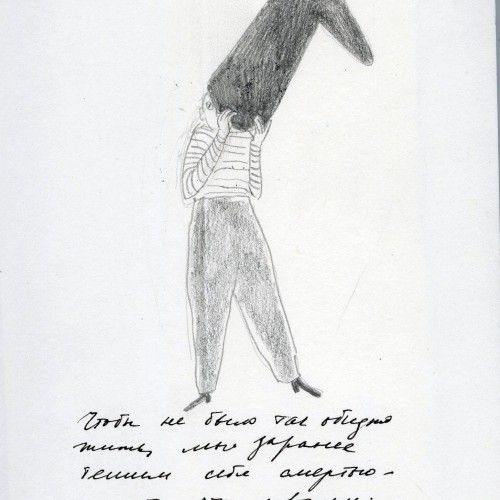 Чтобы не было так обидно
жить, мы заранее
тешим себя смертью –